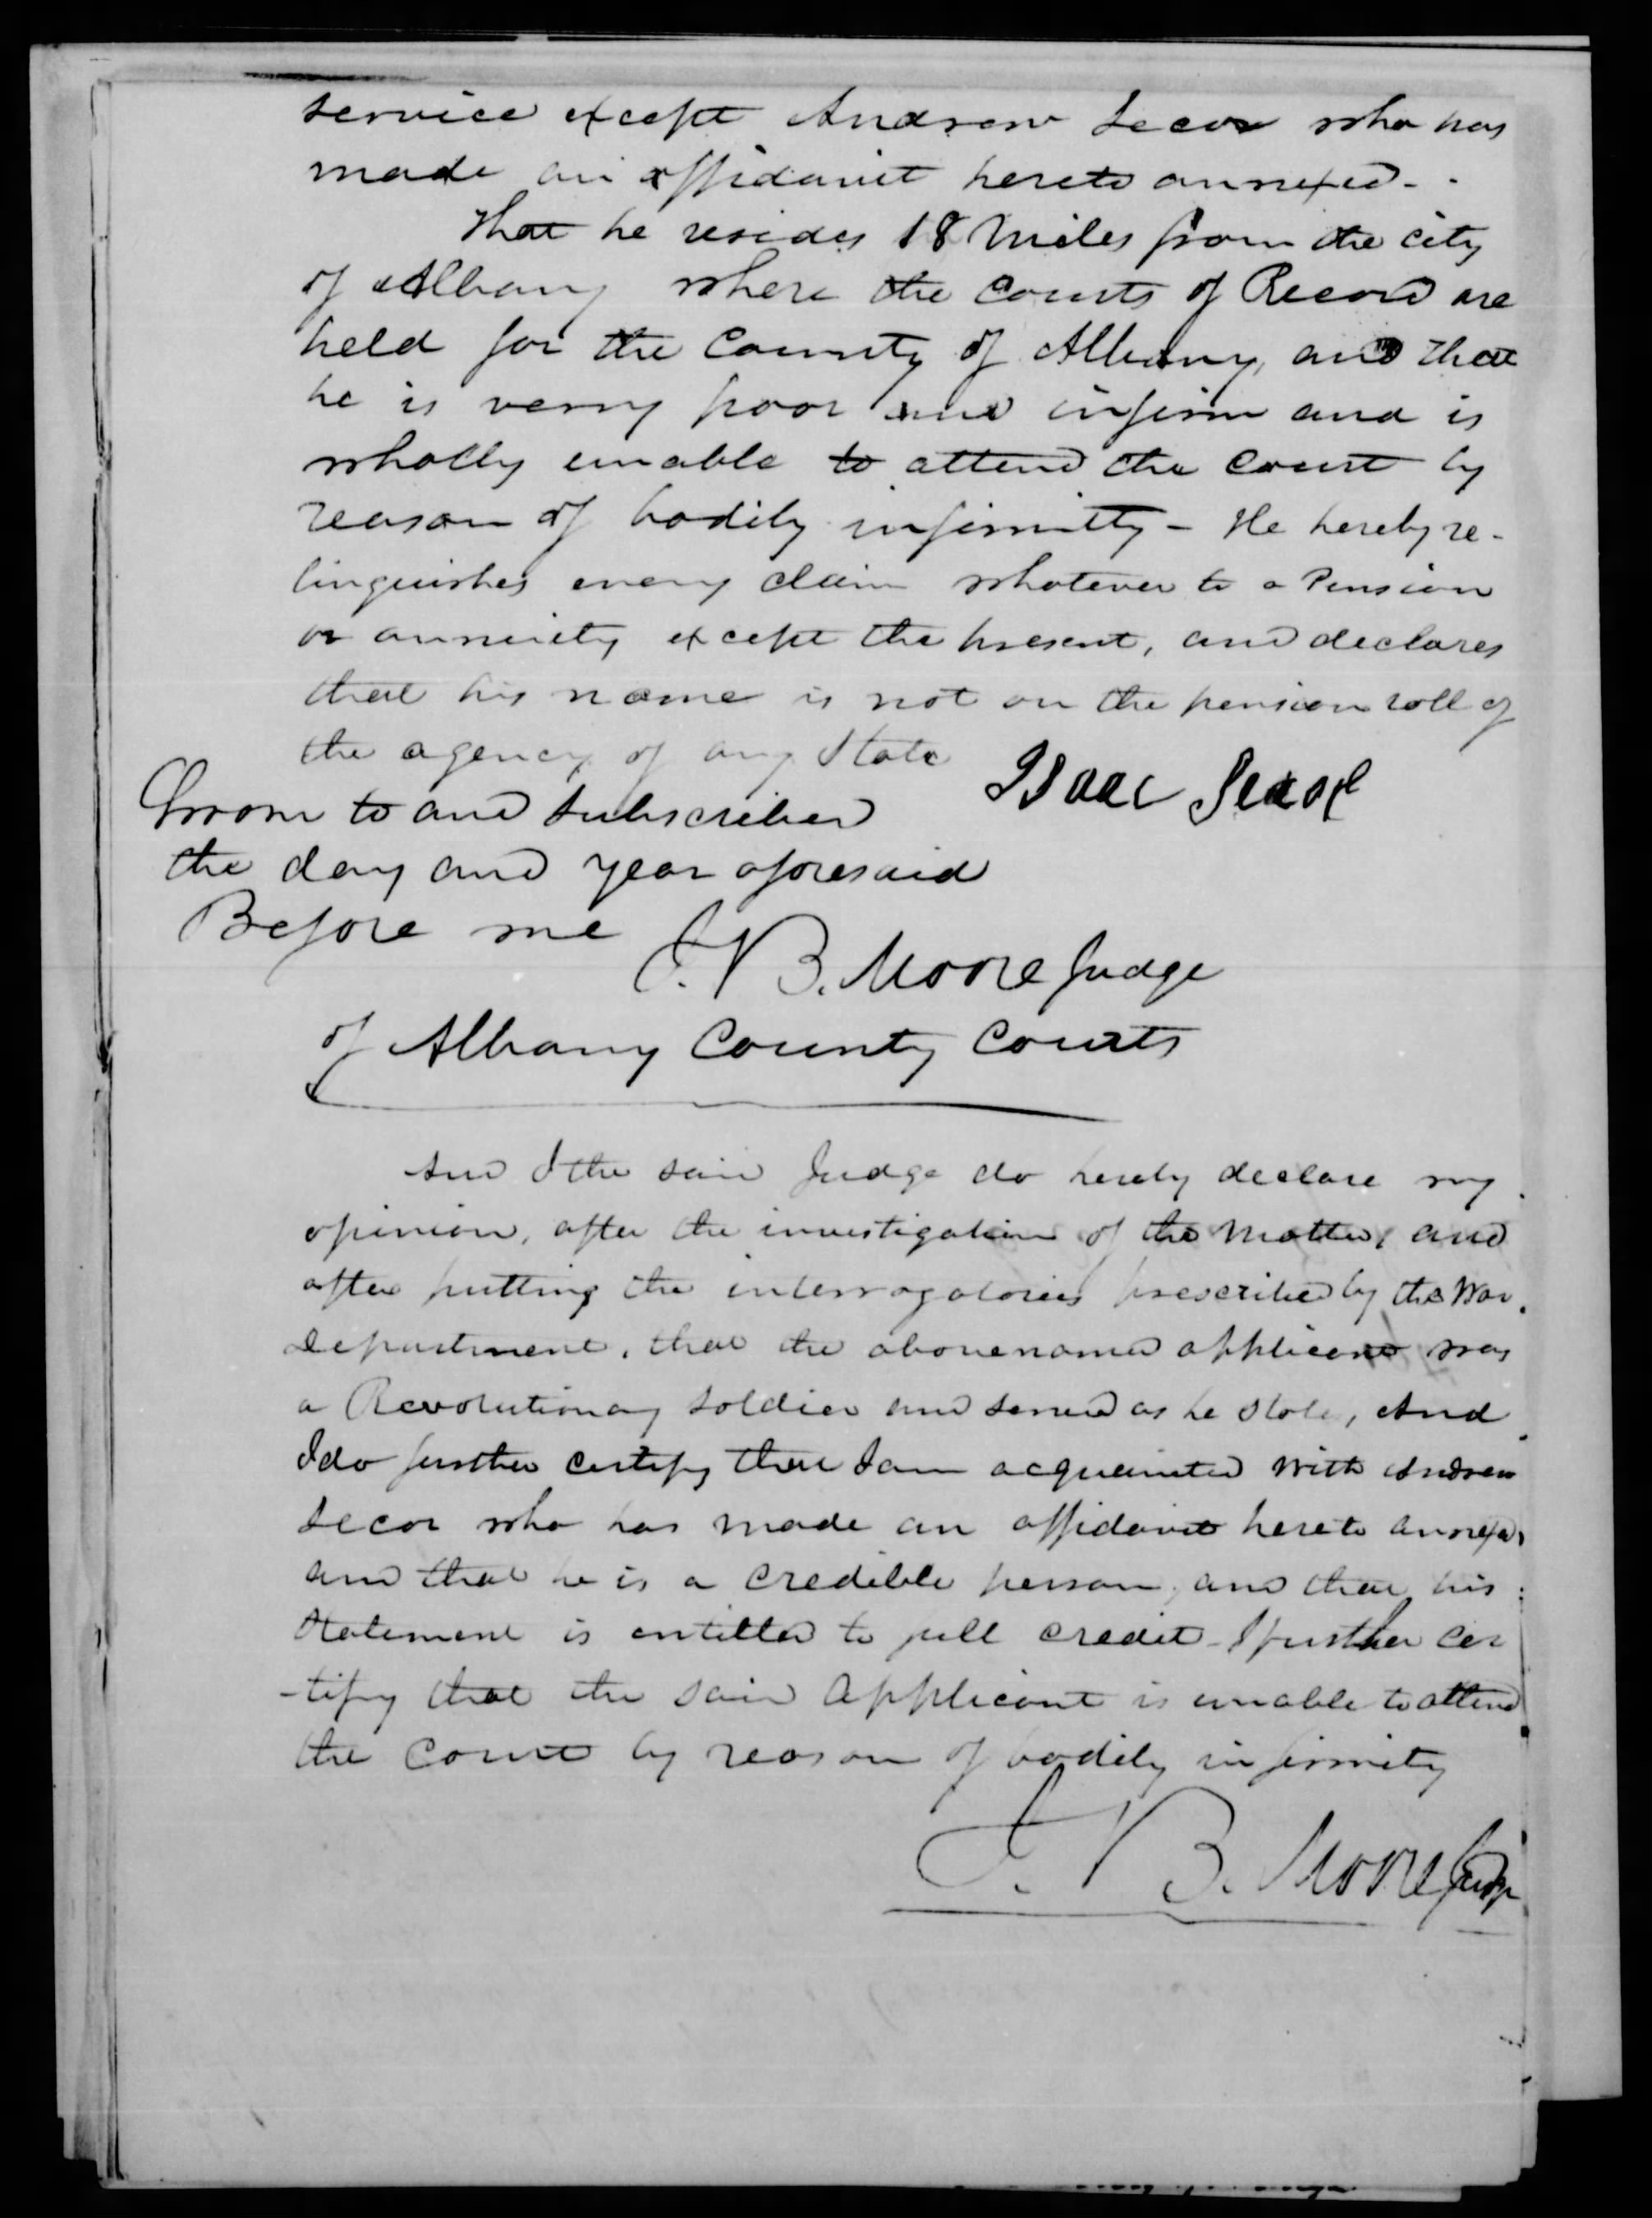 service except Andrew Secor who has
made an affidavit hereto annexed - .
That he resides 18 Miles from the city
of Albany where the Courts of Record are
held for the County of Albany, and that
he is verry poor and infirm and is
wholly unable to attend the Court by
reason of bodily infirmitty - He hereby re-
linquishes every claim whatever to a Pension
or annuity except the present, and declares
that his name is not on the pension roll of
the agency of any State
Isaac
Sworn to and subscribed
the day and year aforesaid
Before me
B. Moore Judge
of Albany County Courts
And I the said Judge do hereby declare my
opinion, after the investigation of the Matter, and
after putting the interrogatories prescribed by the War
Department, that the abovenamed applicant was
a Revolutionary Soldier and served as he states, And
I do further certify that I am acquainted with Andrew
Secor who has made an affidavit hereto annexed
and that he is a credible person, and that his
Statement is entitled to full credit - I further cer
-tify that the said applicant is unable to attend
the Court by reason of bodily infirmity
B. Moore Judge